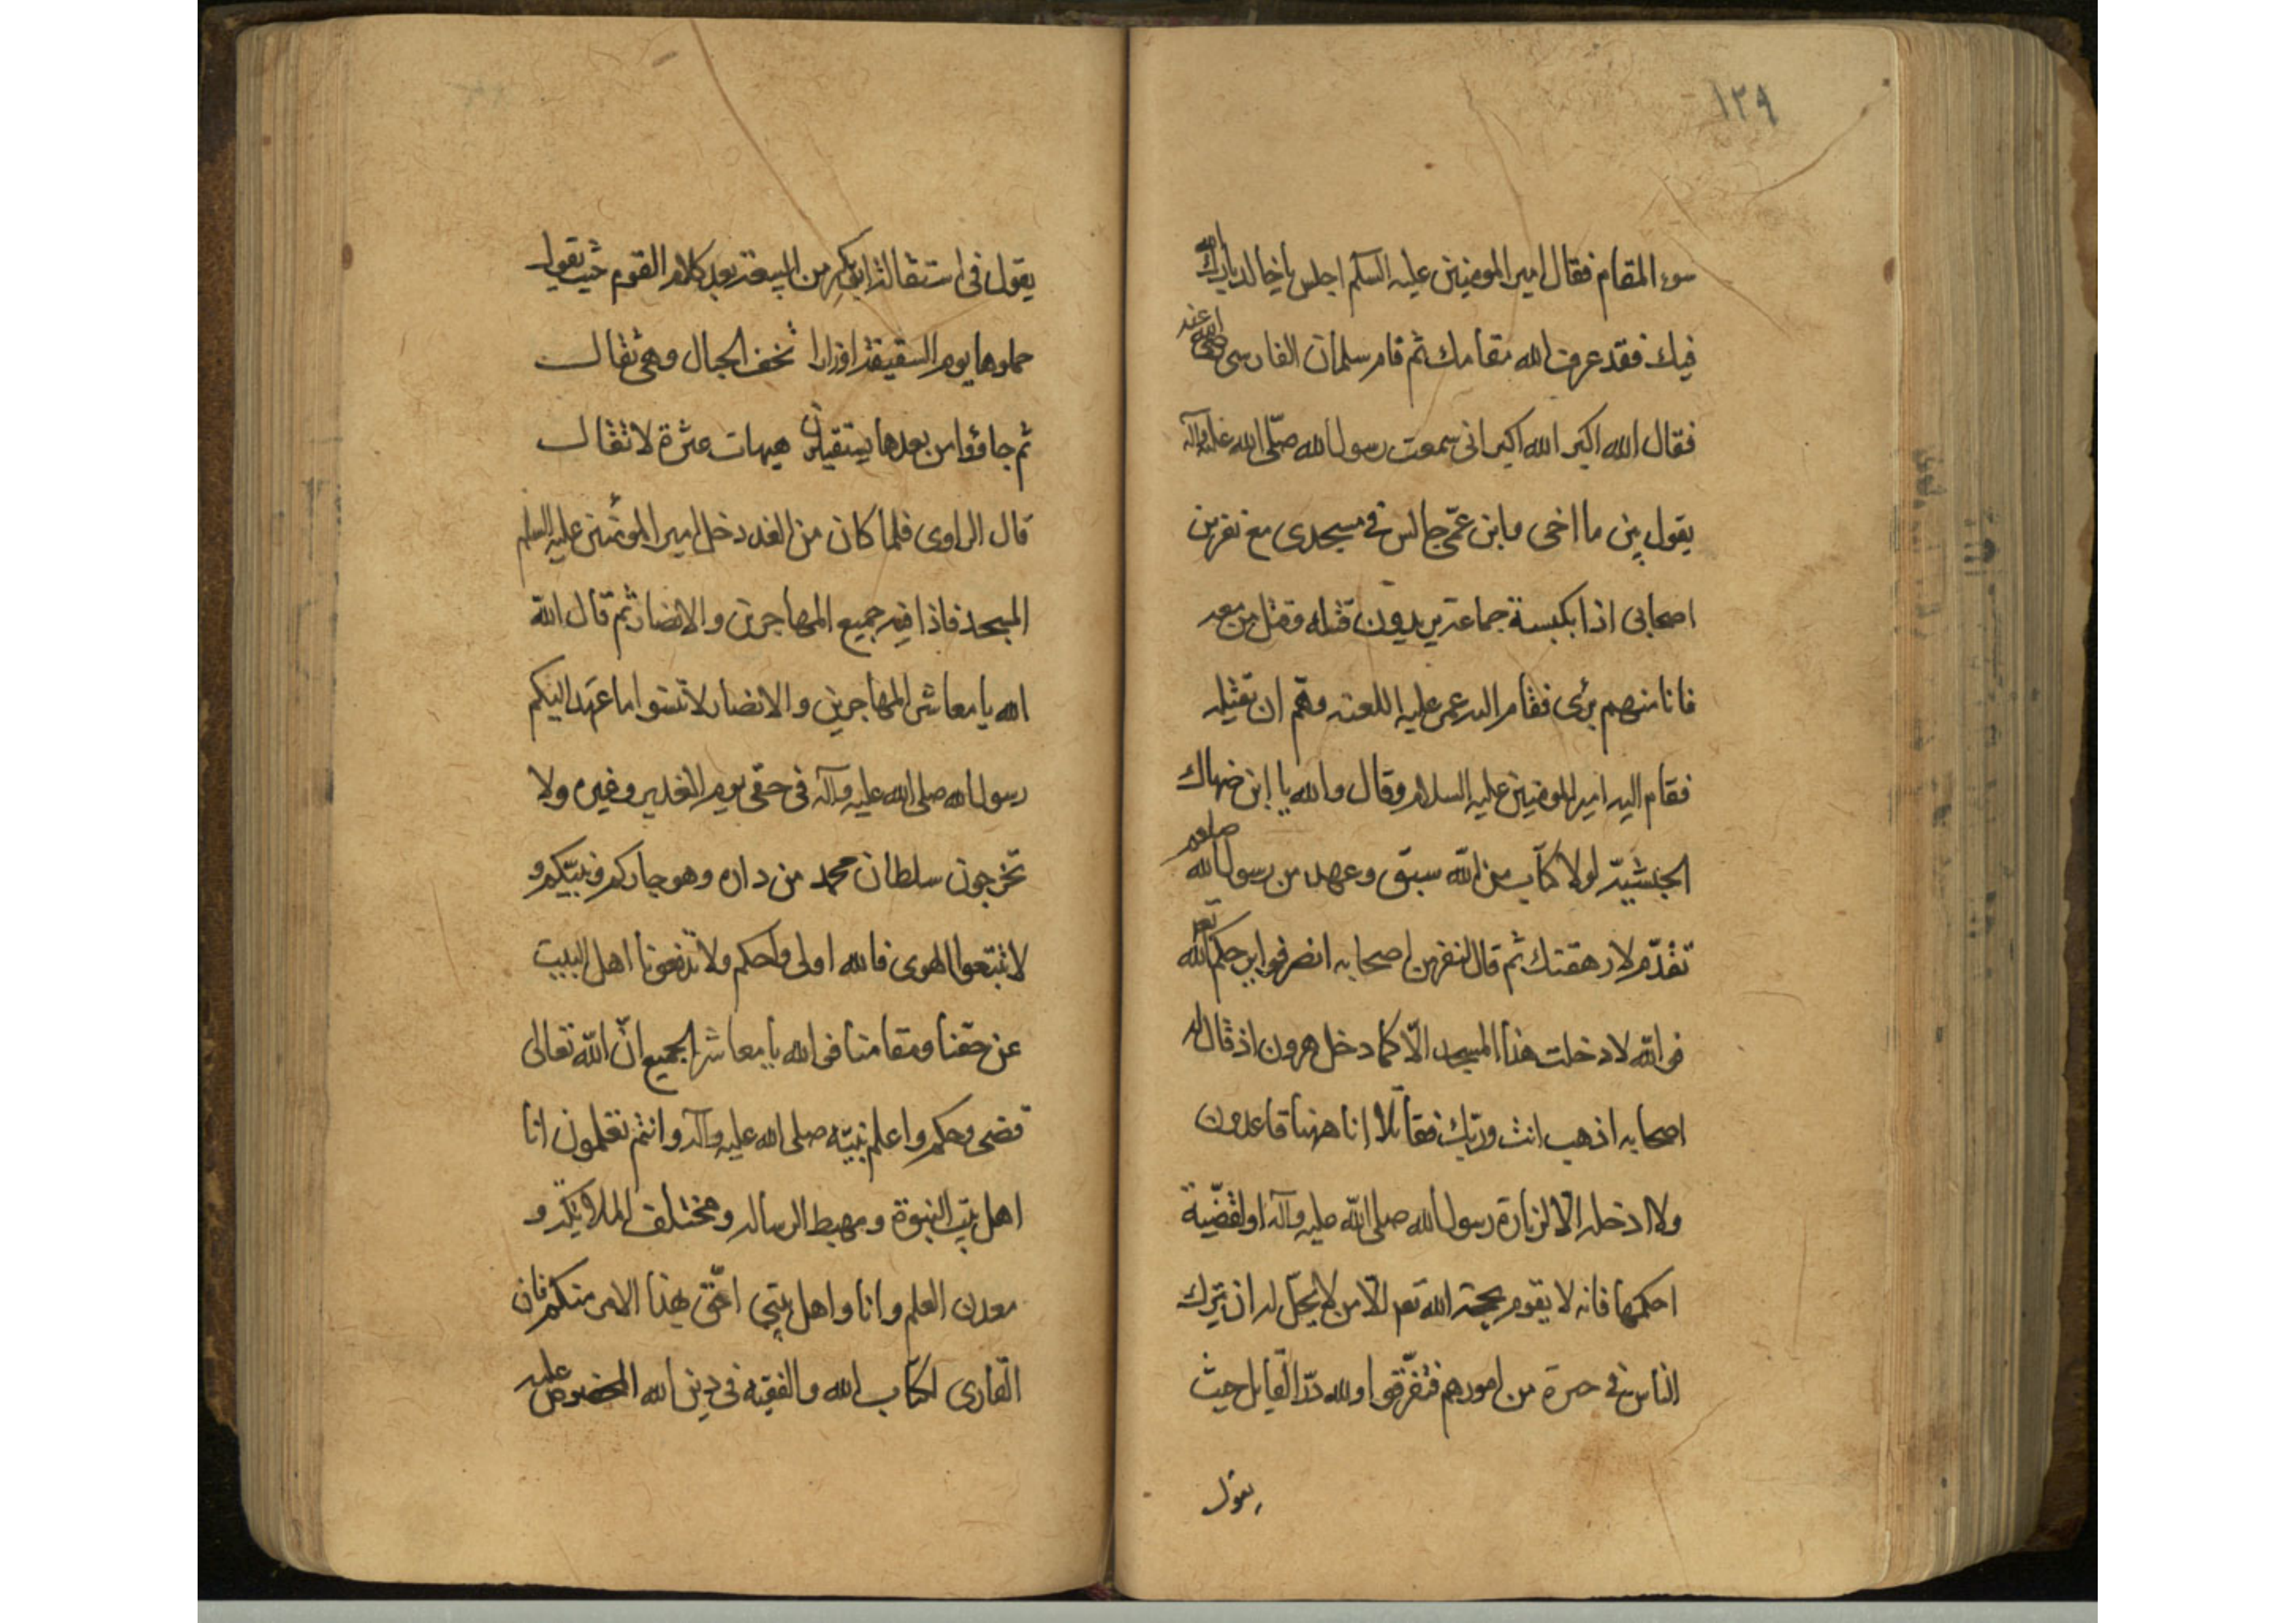 ١٢٩
سوء المقام فقال امير المومنين عليه السلم اجلس يا خالد بارك الله
فيك فقد عرف الله مقامك ثم قام سلمان الفارسى رضى الله عنه
فقال الله اكبر الله اكبر انى سمعت رسول الله صلّى الله عليه وآله
يقول بين ما اخى وابن عمّى جالس فى مسجدى مع نفر من
اصحابى اذا بكبسة جماعة يريدون قتله وقتل من معه
فانا منهم برئ فقام اليه عمر عليه اللعنه وهمّ ان يقتله
فقام اليه امير المومنين عليه السلام وقال والله يا ابن ضهاك
الحبشيّة لولا كتاب من الله سبق وعهد من رسول الله صلعم
تقدّم لارهقتك ثم قال لنفر من اصحابه انصرفوا يرحمكم الله تعر
فوالله لا دخلت هذا المسجد الّا كما دخل هرون اذ قال له
اصحابه اذهب انت وربّك فقاتلا انا ههنا قاعدون
ولا ادخله الّا لزيارة رسول الله صلى الله عليه وآله او لقضيّة
احكمها فانه لا يقوم بحجة الله تعر الّا من لا يحلّ له ان يترك
الناس فى حيرة من امورهم فتفرّقوا ولله درّ القايل حيث
يقول
يقول فى استقالة ابى بكر من البيعة بعد كلام القوم حيث يقول
حملوها يوم السقيفة اوزارا تخف الجبال وهى ثقال
ثم جاؤا من بعدها يستقيلون هيهات عثرة لا تقال
قال الراوى فلما كان من الغد دخل امير المؤمنين عليه السلم
المسجد فاذا فيه جميع المهاجرين والانصار ثم قال الله
الله يا معاشر المهاجرين والانصار لا تنسوا ما عهد اليكم
رسول الله صلى الله عليه وآله فى حقى يوم الغدير وغيره ولا
تخرجون سلطان محمد من داره وهو جاركم ونبيّكم و
لا تتبعوا الهوى فالله اولى واحكم ولا تدفعونا اهل البيت
عن حقّنا ومقامنا فى الله يا معاشر الجميع انّ الله تعالى
قضى وحكم واعلم نبيّه صلى الله عليه وآله وانتم تعلمون انا
اهل بيت النبوة ومهبط الرساله ومختلف الملايكة و
معدن العلم وانا واهل بيتى احقّ بهذا الامر منكم فان
القارى لكتاب الله والفقيه فى دين الله المخصوص عليه